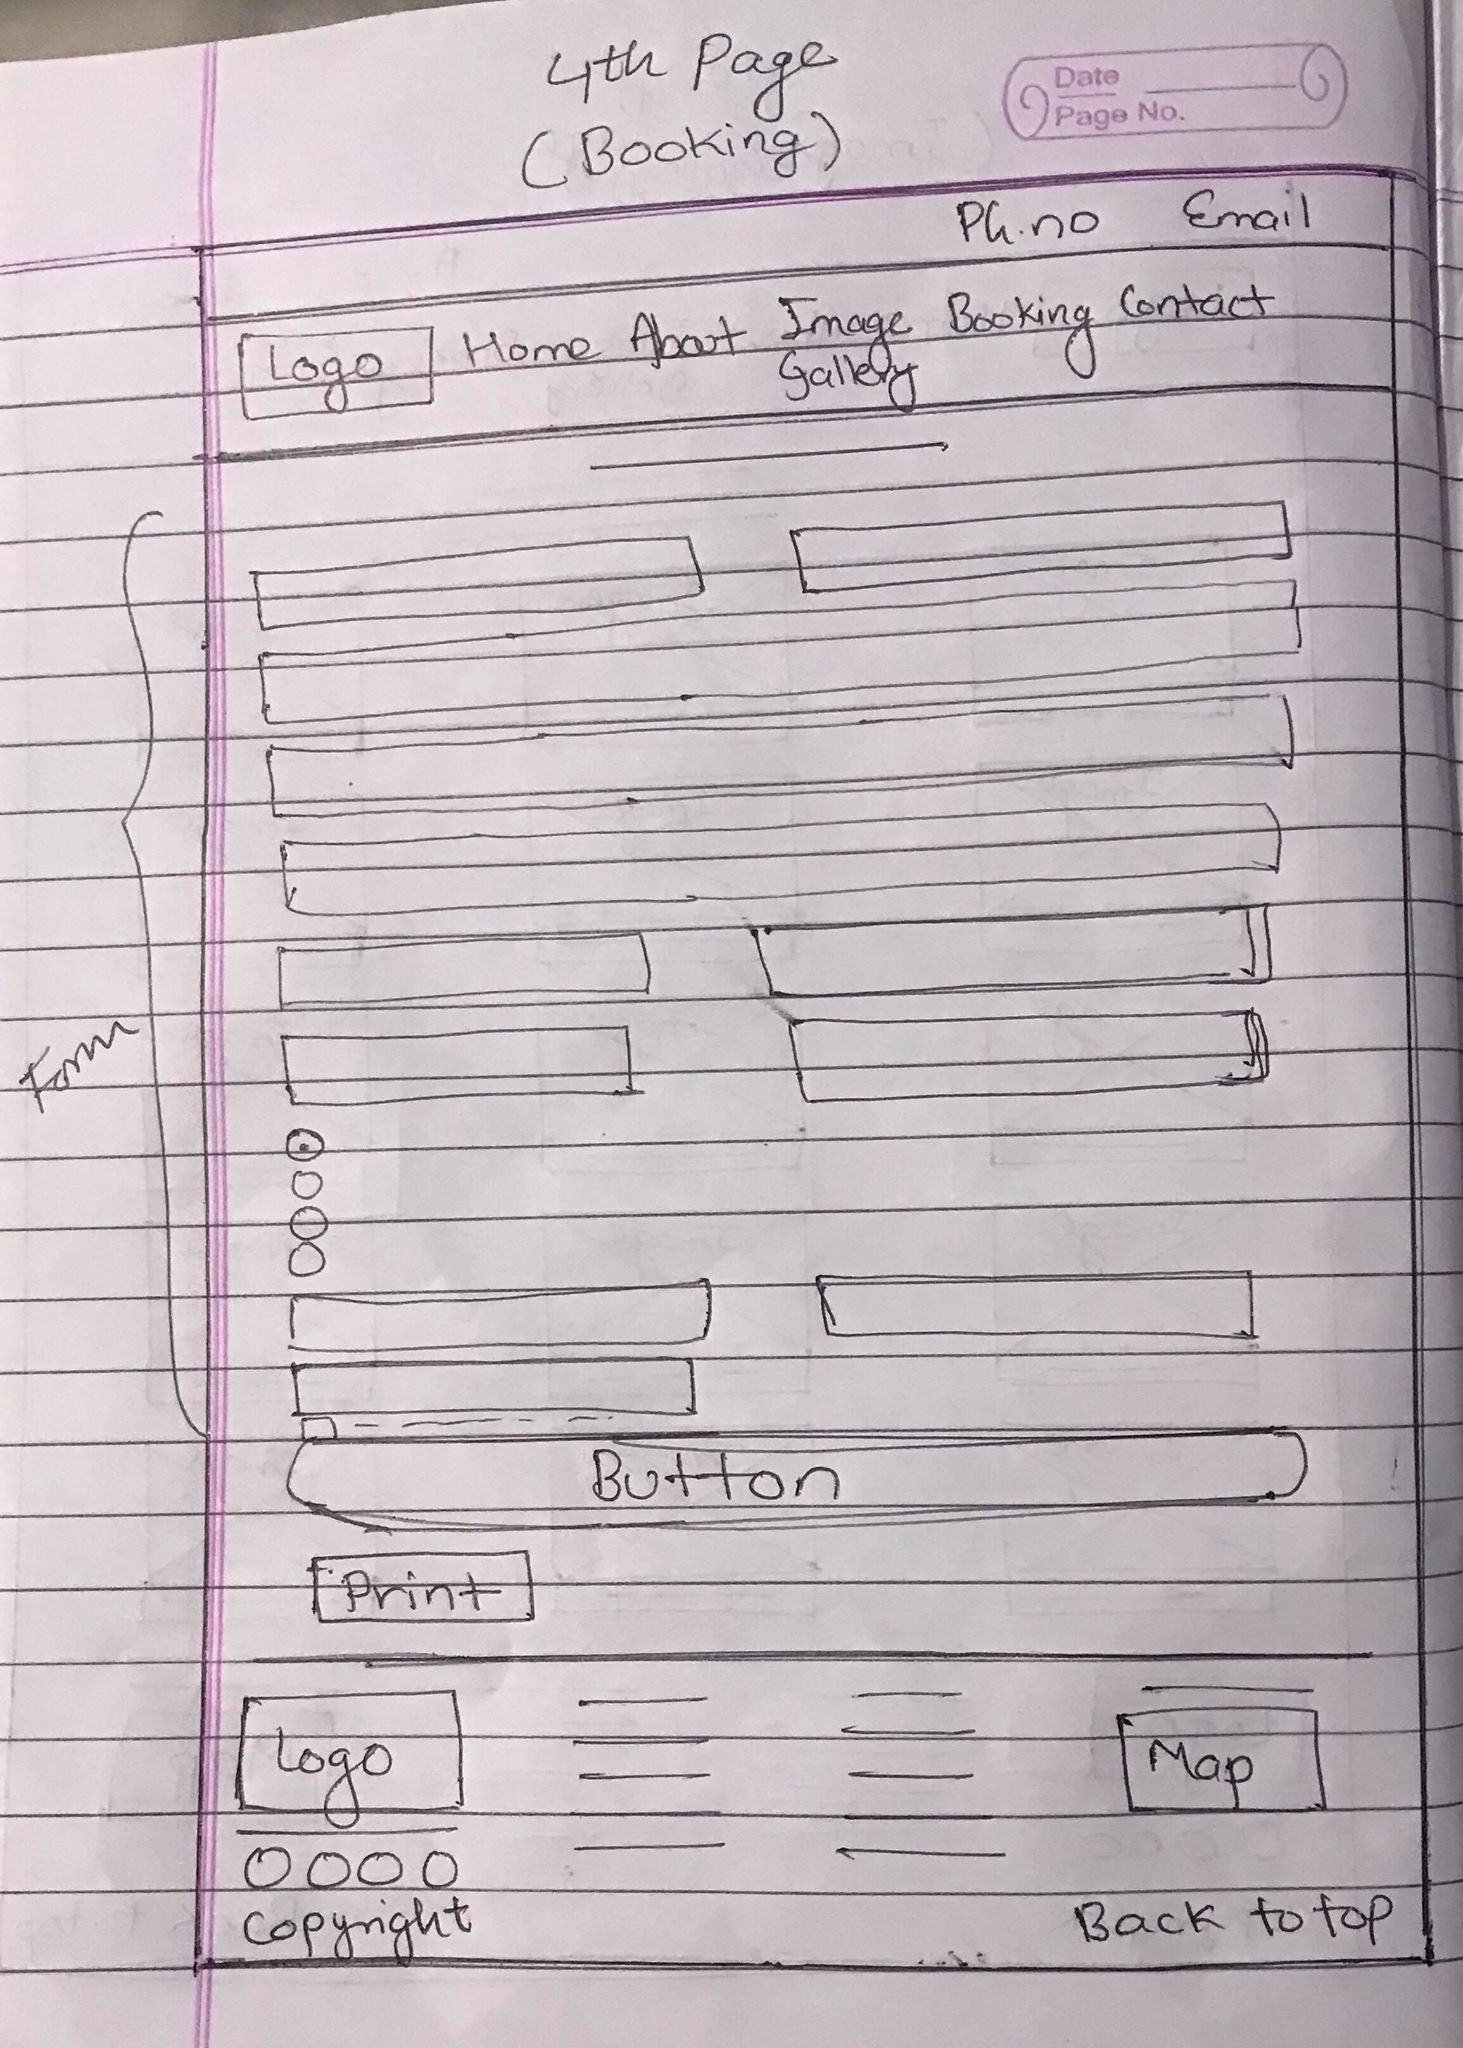 4th Page
(Booking)
Date
Page No.
Ph.no Email
Logo Home About Image Gallery Booking Contact
Form
Button
Print
Logo
Map
Copyright
Back to top